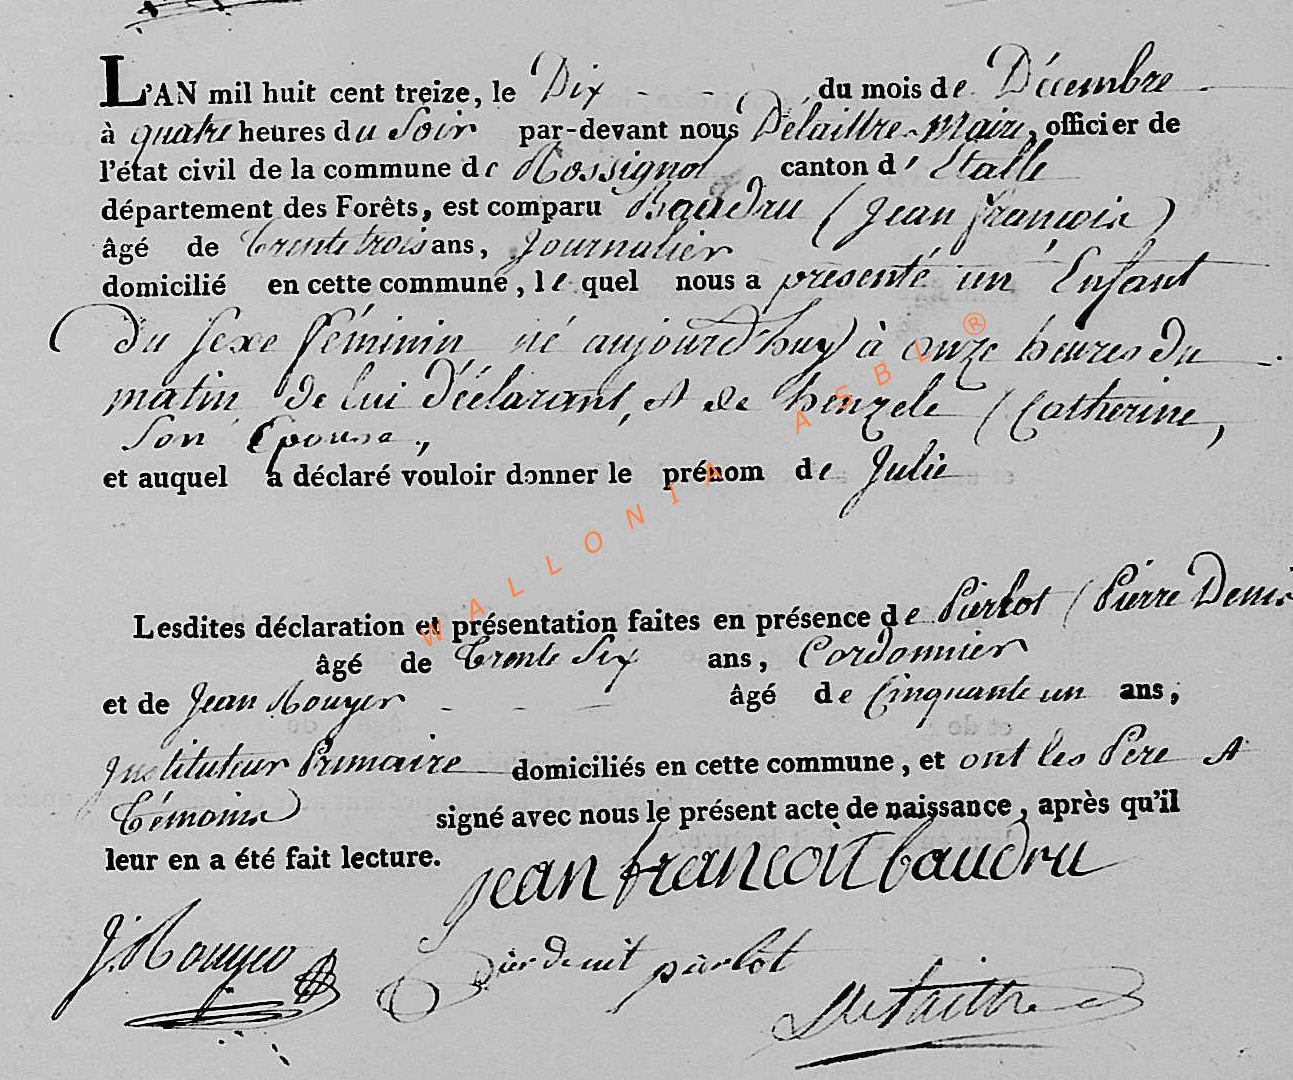 L'AN mil huit cent treize, le Dix - - du mois de Décembre
à quatre heures du Soir par-devant nous Delaittre Maire, officier de
l'état civil de la commune de Rossignol canton d'Etalle
département des Forêts, est comparu Baudru (Jean françois)
âgé de trente trois ans, Journalier
domicilié en cette commune, lequel nous a présenté un Enfant
Du sexe féminin né aujourd'huy à onze heures du
matin De lui Déclarant, et de henzele (Catherine,
Son Epouse.,
et auquel a déclaré vouloir donner le prénom de Julie
Lesdites déclaration et présentation faites en présence de Pierlot (Pierre Denis
âgé de trente Six ans, Cordonnier
et de Jean Rouyer - - - âgé de Cinquante un ans,
Instituteur Primaire domiciliés en cette commune, et ont les Père et
Témoins signé avec nous le présent acte de naissance, après qu'il
leur en a été fait lecture.
jean francoit baudru
J. Rouyer pierlot
Delaittre
WALLONIA ASBL ®